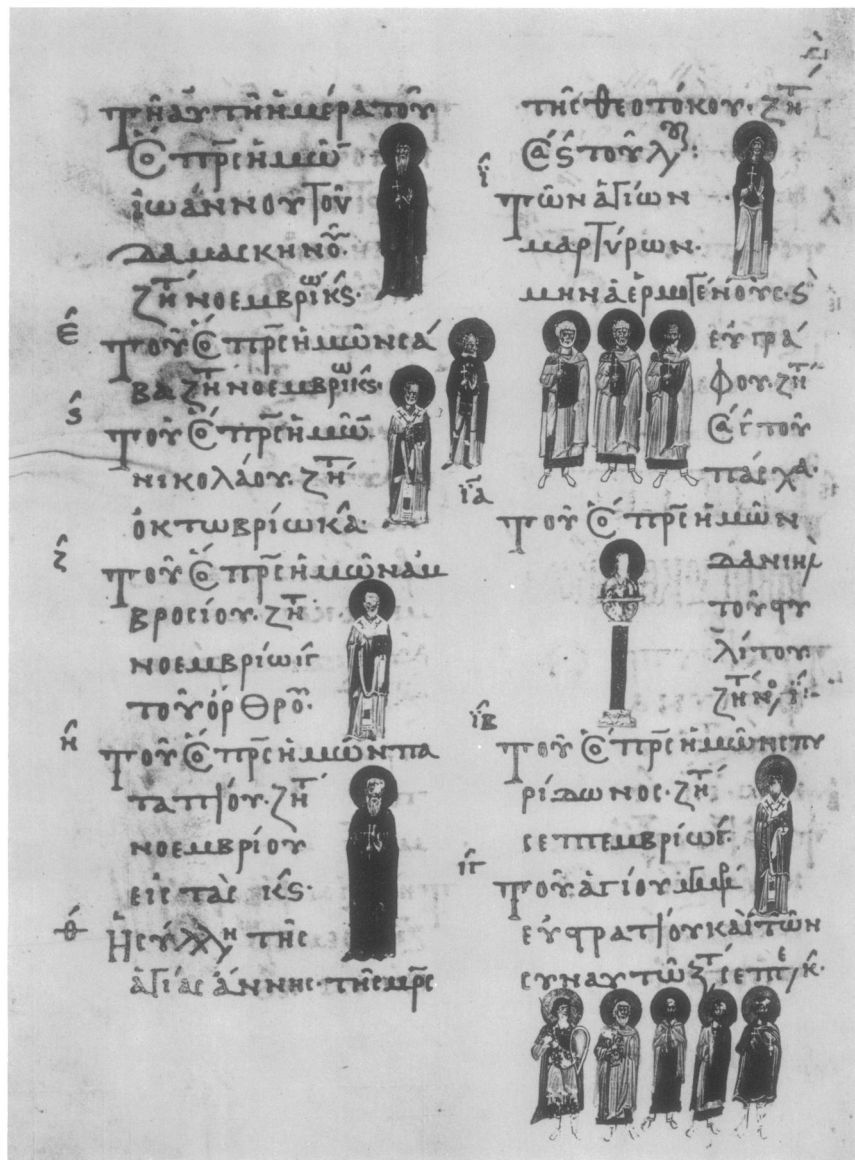 Τῆ αὐτῆ ἡμέρα τοῦ
ὁσ πρς ἡμῶ
ἰωάννου τοῦ
δαμασκηνοῦ.
ζητ νοεμβρίω κς.
ε τοῦ ὁσ πρς ἡμῶν σά
βα ζητ νοεμβρίω κς.
ς τοῦ ὁσ πρς ἡμῶ.
νικολάου. ζητ
ὀκτωβρίω κα.
ζ τοῦ ὁσ πρς ἡμῶν ἀμ
βροσίου. ζητ
νοεμβρίω ιγ
τοῦ ὄρθρου.
η τοῦ ὁσ πρς ἡμῶν πα
ταπίου. ζητ
νοεμβρίου
εἰς τὰς κς.
θ Ἡ σύλλη τῆς
ἁγίας ἄννης. τῆς μρς
τῆς θεοτόκου. ζητ
τοῦ
ι τῶν ἁγίων
μαρτύρων.
μηνᾶ ἑρμογένους. ς
εὐγρά
φου. ζητ
τοῦ
πάσχα.
ια
τοῦ ὁσ πρς ἡμῶν
δανιὴλ
τοῦ στυ
λίτου
ζητ
ιβ τοῦ ὁσ πρς ἡμῶν σπυ
ρίδωνος. ζητ
σεπτεμβρίω γ.
ιγ τοῦ ἁγίου
εὐστρατίου καὶ τῶν
σὺν αὐτῶ ζτ σεπτε κ.